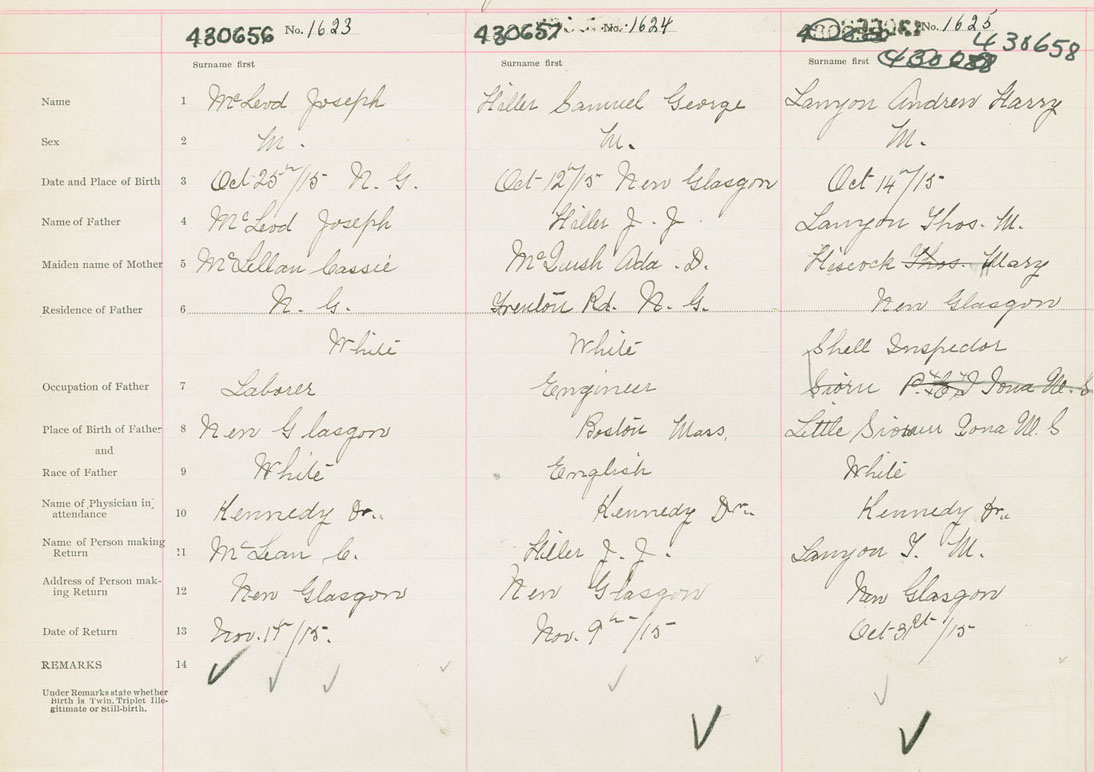 430656 No. 1623 430657 No. 1624 No. 1625 438658
Surname first Surname first Surname first
Name 1 McLeod Joseph Hiller Samuel George Lanyon Andrew Harry
Sex 2 M. M. M.
Date and Place of Birth 3 Oct 25th/15 N. G. Oct 12th/15 New Glasgow Oct 14th/15
Name of Father 4 McLeod Joseph Hiller J. J. Lanyon Thos. M.
Maiden name of Mother 5 McLellan Cassie McQuish Ada. D. Hiscock Thos. Mary
Residence of Father 6 N. G. Trenton Rd. N. G. New Glasgow
White White Shell Inspector
Occupation of Father 7 Laborer Engineer Iona
Place of Birth of Father 8 New Glasgow Boston Mass. Little Iona
and
Race of Father 9 White English White
Name of Physician in attendance 10 Kennedy Dr. Kennedy Dr. Kennedy Dr.
Name of Person making Return 11 McLean C. Hiller J. J. Lanyon T. M.
Address of Person making Return 12 New Glasgow New Glasgow New Glasgow
Date of Return 13 Nov. 1st/15. Nov. 9th/15 Oct 31st/15
REMARKS 14
Under Remarks state whether
Birth is Twin, Triplet Ille-
gitimate or Still-birth.